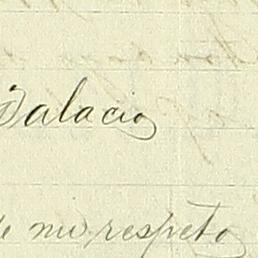 Palacio
de mi respeto